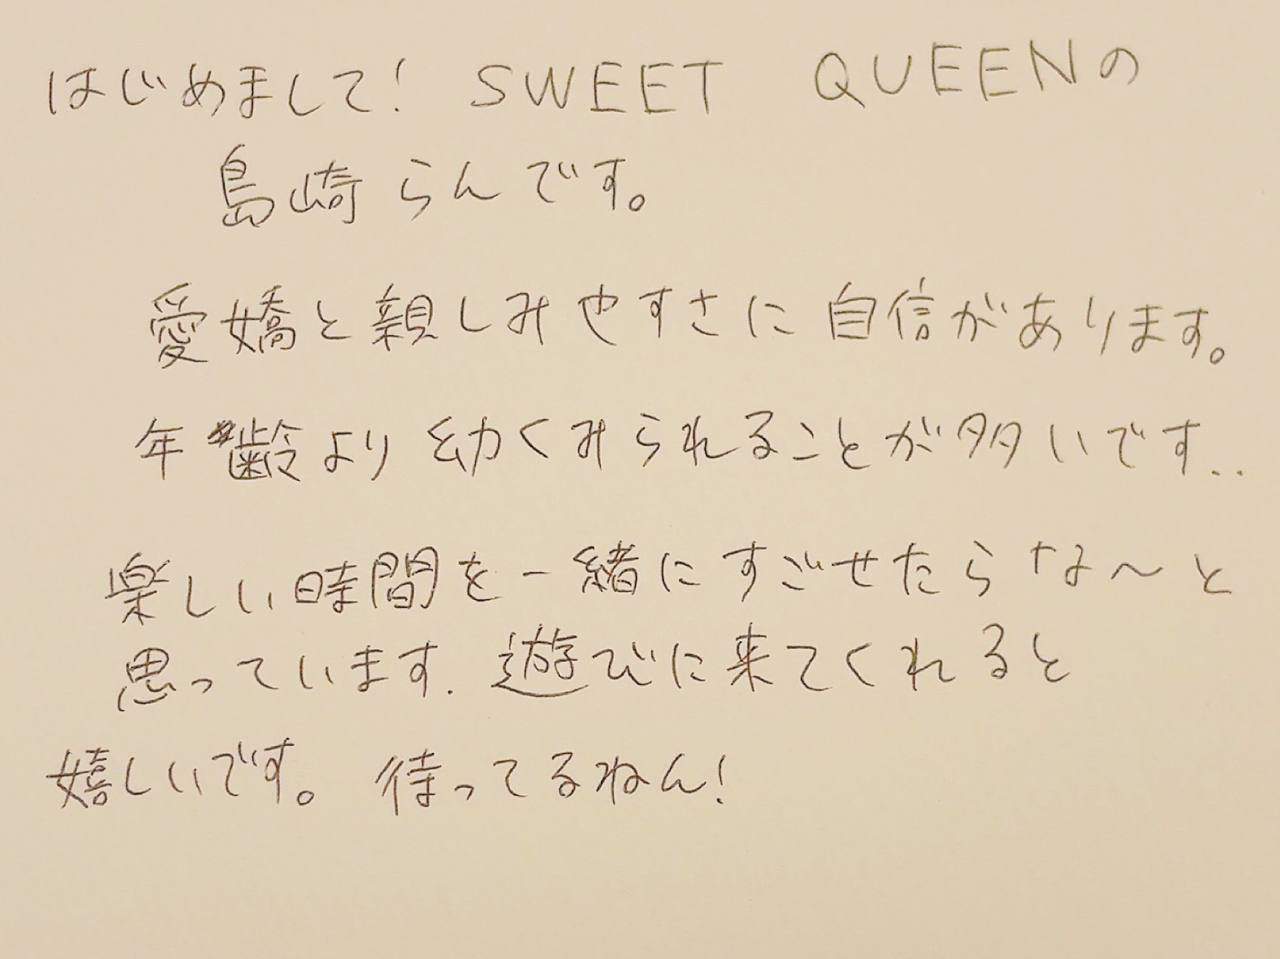 はじめまして! SWEET QUEENの
島崎らんです。
愛嬌と親しみやすさに自信があります。
年齢より幼くみられることが多いです..
楽しい時間を一緒にすごせたらな〜と
思っています.遊びに来てくれると
嬉しいです。待ってるねん!